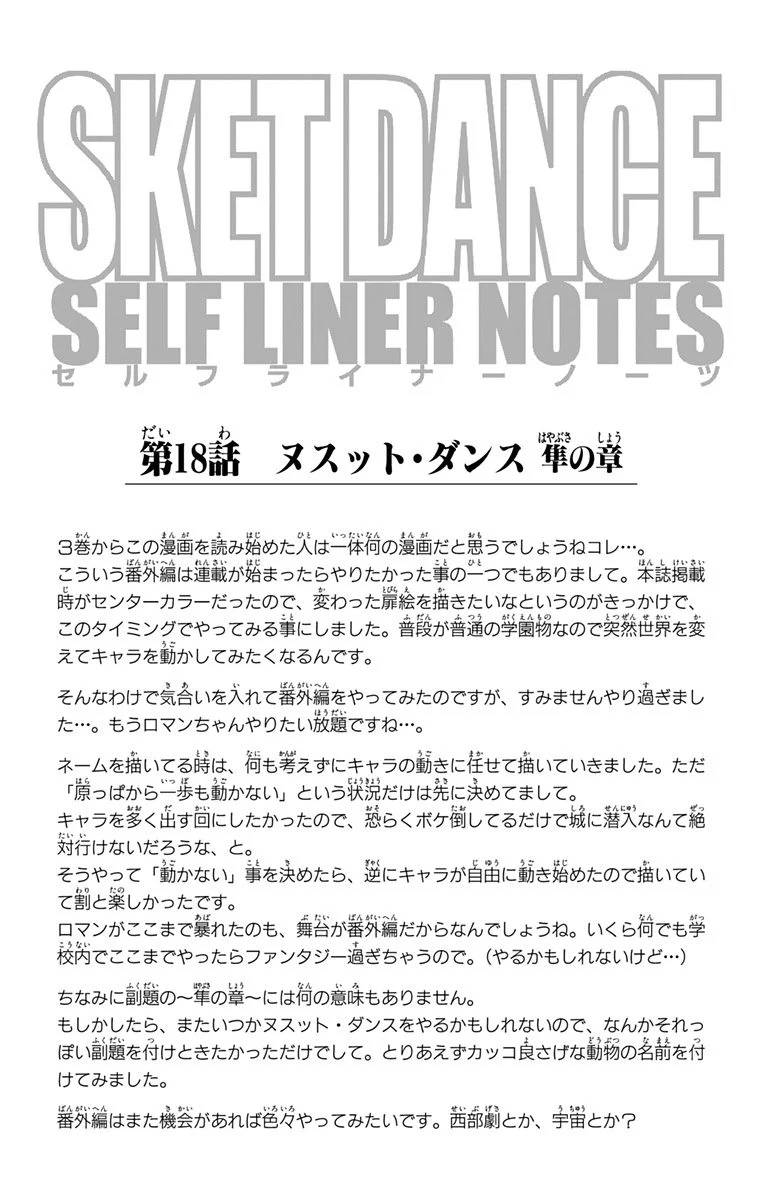 SKET DANCE
SELF LINER NOTES
セルフライナーノーツ
第18話　ヌスット・ダンス 隼の章
3巻からこの漫画を読み始めた人は一体何の漫画だと思うでしょうねコレ…。
こういう番外編は連載が始まったらやりたかった事の一つでもありまして。本誌掲載
時がセンターカラーだったので、変わった扉絵を描きたいなというのがきっかけで、
このタイミングでやってみる事にしました。普段が普通の学園物なので突然世界を変
えてキャラを動かしてみたくなるんです。
そんなわけで気合いを入れて番外編をやってみたのですが、すみませんやり過ぎまし
た…。もうロマンちゃんやりたい放題ですね…。
ネームを描いてる時は、何も考えずにキャラの動きに任せて描いていきました。ただ
「原っぱから一歩も動かない」という状況だけは先に決めてまして。
キャラを多く出す回にしたかったので、恐らくボケ倒してるだけで城に潜入なんて絶
対行けないだろうな、と。
そうやって「動かない」事を決めたら、逆にキャラが自由に動き始めたので描いてい
て割と楽しかったです。
ロマンがここまで暴れたのも、舞台が番外編だからなんでしょうね。いくら何でも学
校内でここまでやったらファンタジー過ぎちゃうので。（やるかもしれないけど…）
ちなみに副題の～隼の章～には何の意味もありません。
もしかしたら、またいつかヌスット・ダンスをやるかもしれないので、なんかそれっ
ぽい副題を付けときたかっただけでして。とりあえずカッコ良さげな動物の名前を付
けてみました。
番外編はまた機会があれば色々やってみたいです。西部劇とか、宇宙とか？